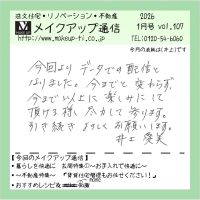 注文住宅・リノベーション・不動産
メイクアップ通信
http://www.makeup-ti.co.jp
2026
1月号 vol.107
TEL:0120-54-6060
今月の表紙は(井上)です
今回よりデータでの配信と
なりました。今までと変わらず、
今まで以上に楽しみにして
頂ける様 尽力して参ります。
引き続き よろしくお願いします。
井上 愛美
【今回のメイクアップ通信】
・暮らしを快適に 玄関特集①～お手入れで快適に～
・～不動産特集～ 『賃貸住宅管理もお任せください!』
・おすすめレシピ&